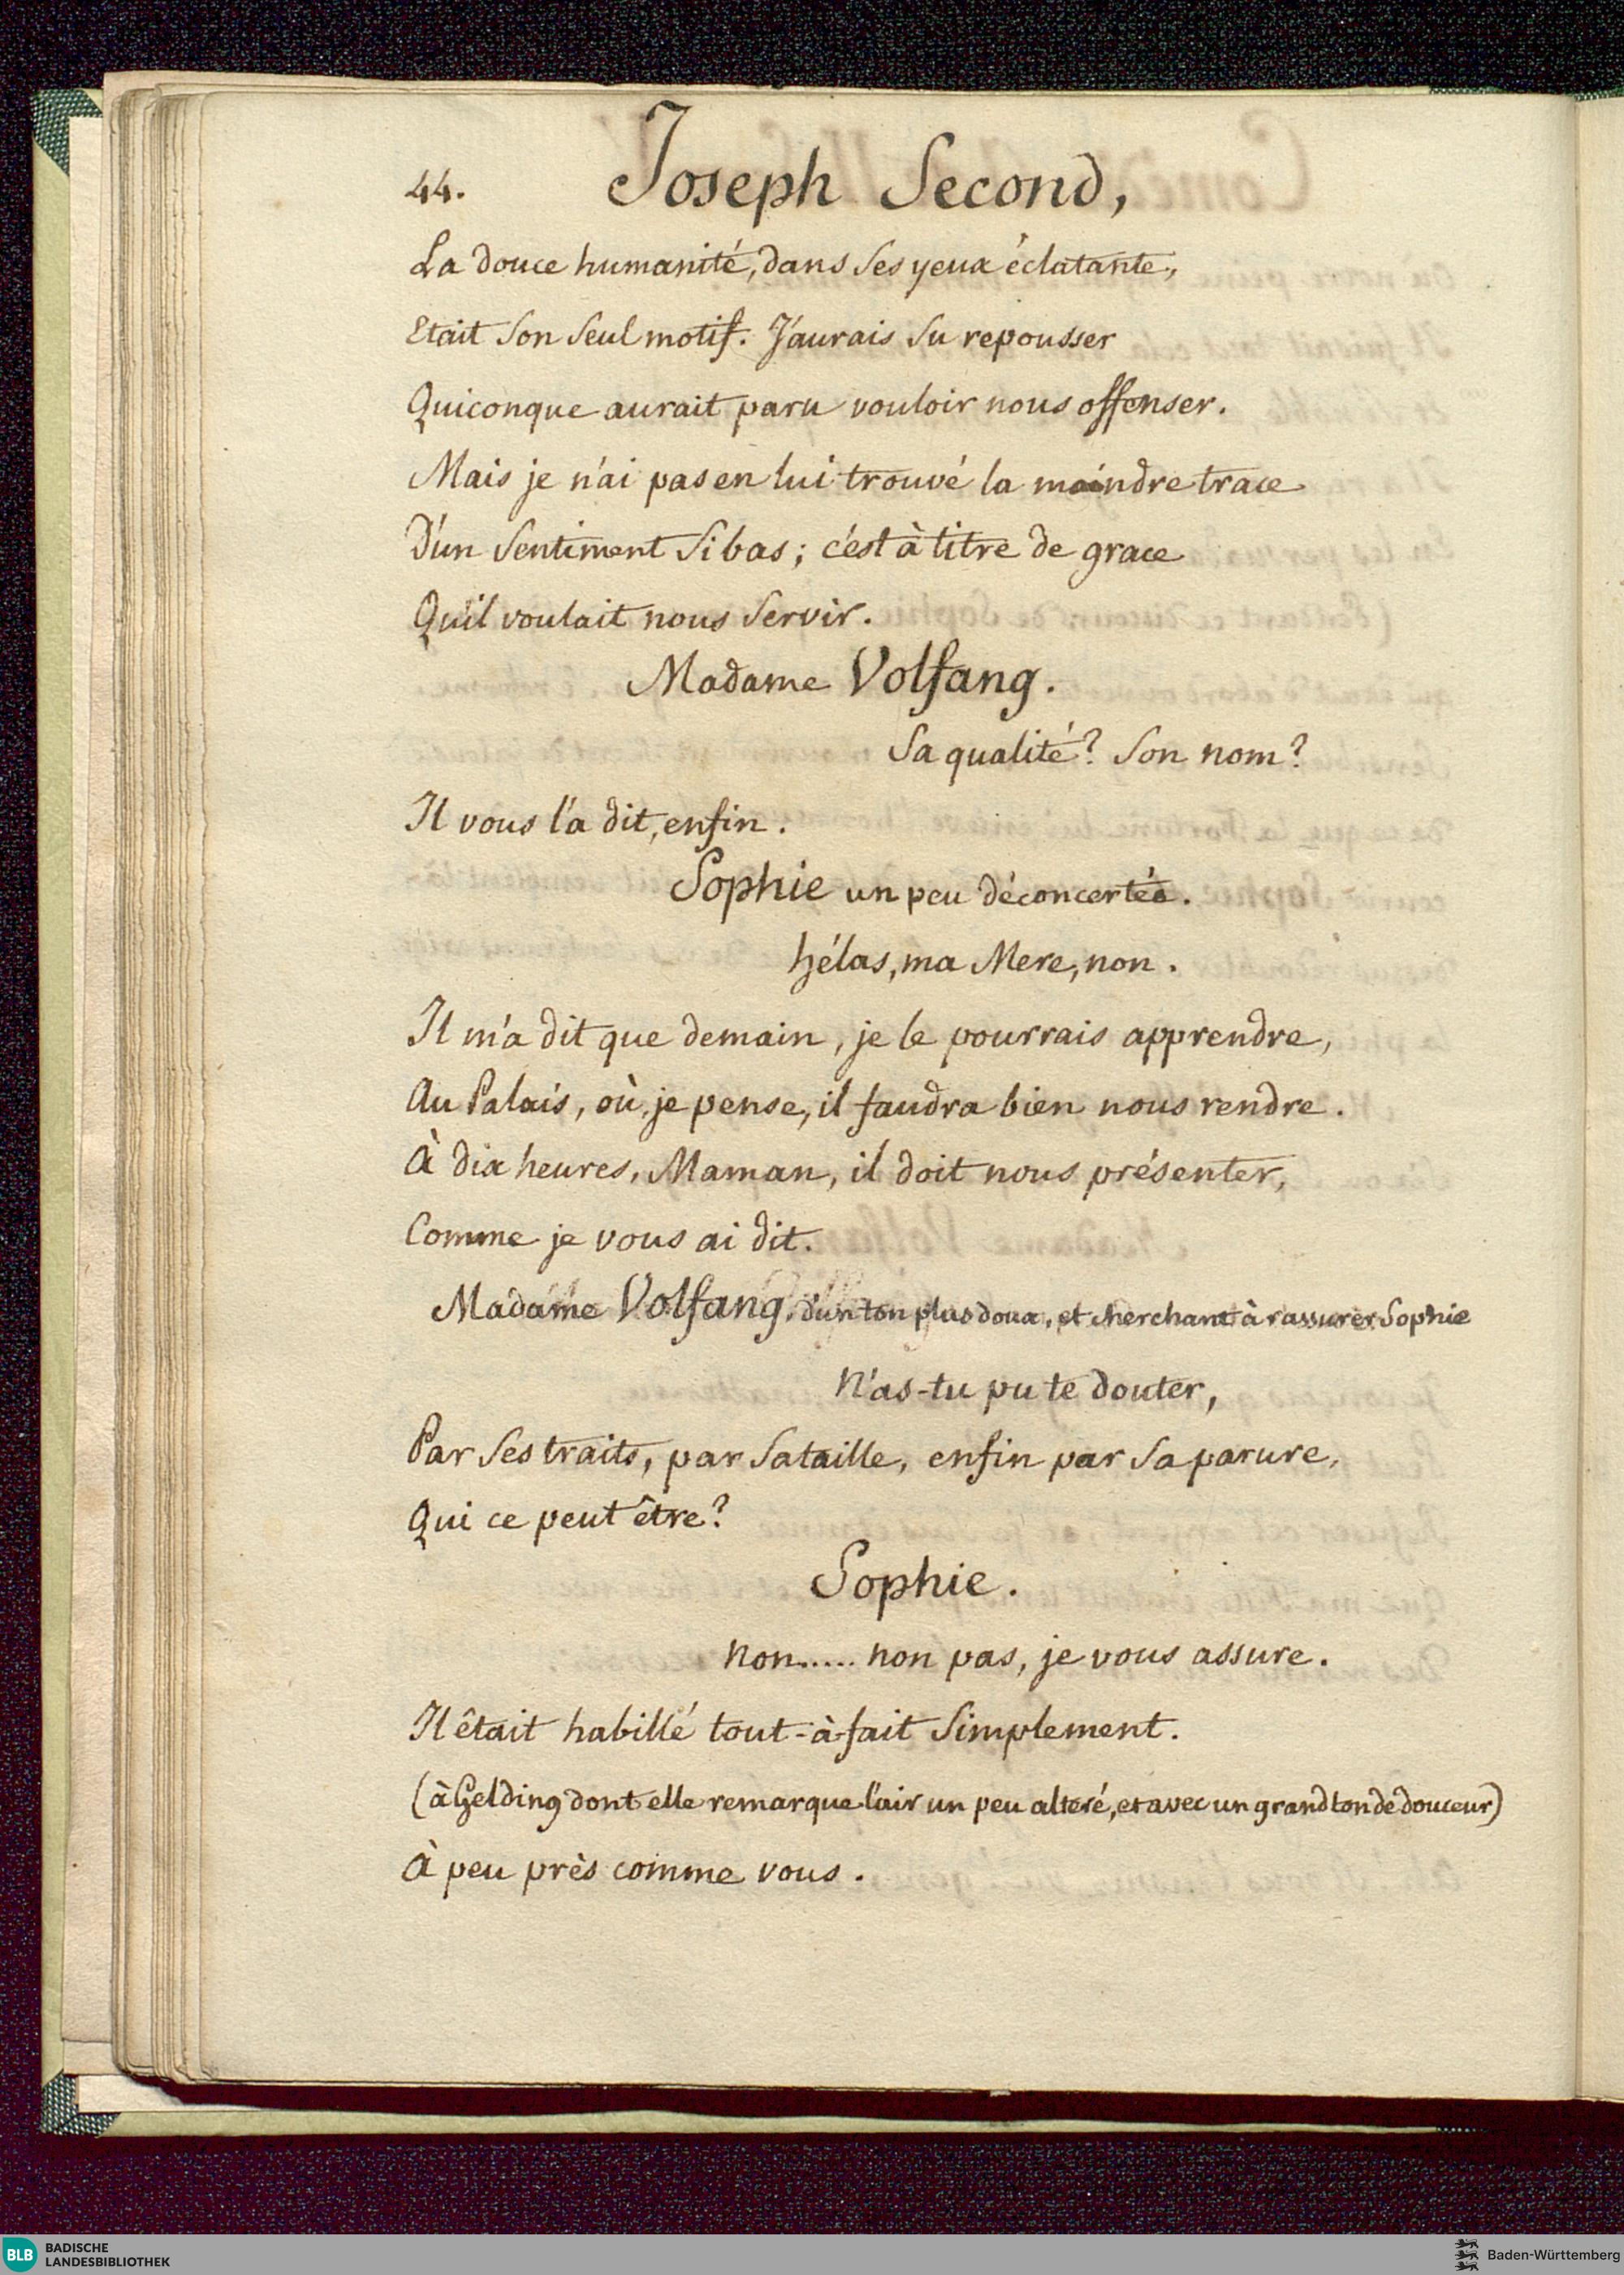 44. Joseph Second,
La douce humanité, dans ses yeux éclatante,
Etait son seul motif. J'aurais su repousser
Quiconque aurait paru vouloir nous offenser.
Mais je n'ai pas en lui trouvé la moindre trace
D'un sentiment si bas; c'est à titre de grace
Qu'il voulait nous servir.
Madame Volfang.
Sa qualité? Son nom?
Il vous l'a dit, enfin.
Sophie un peu déconcertée.
hélas, ma Mere, non.
Il m'a dit que demain, je le pourrais apprendre,
Au Palais, où, je pense, il faudra bien nous rendre.
À dix heures, Maman, il doit nous présenter,
Comme je vous ai dit.
Madame Volfang, d'un ton plus doux, et cherchant à rassurer Sophie
N'as-tu pu te douter,
Par ses traits, par sa taille, enfin par sa parure,
Qui ce peut être?
Sophie.
Non..... non pas, je vous assure.
Il êtait habillé tout-à-fait simplement.
(à Gelding dont elle remarque l'air un peu alteré, et avec un grand ton de douceur)
À peu près comme vous.
BLB BADISCHE
LANDESBIBLIOTHEK
Baden-Württemberg